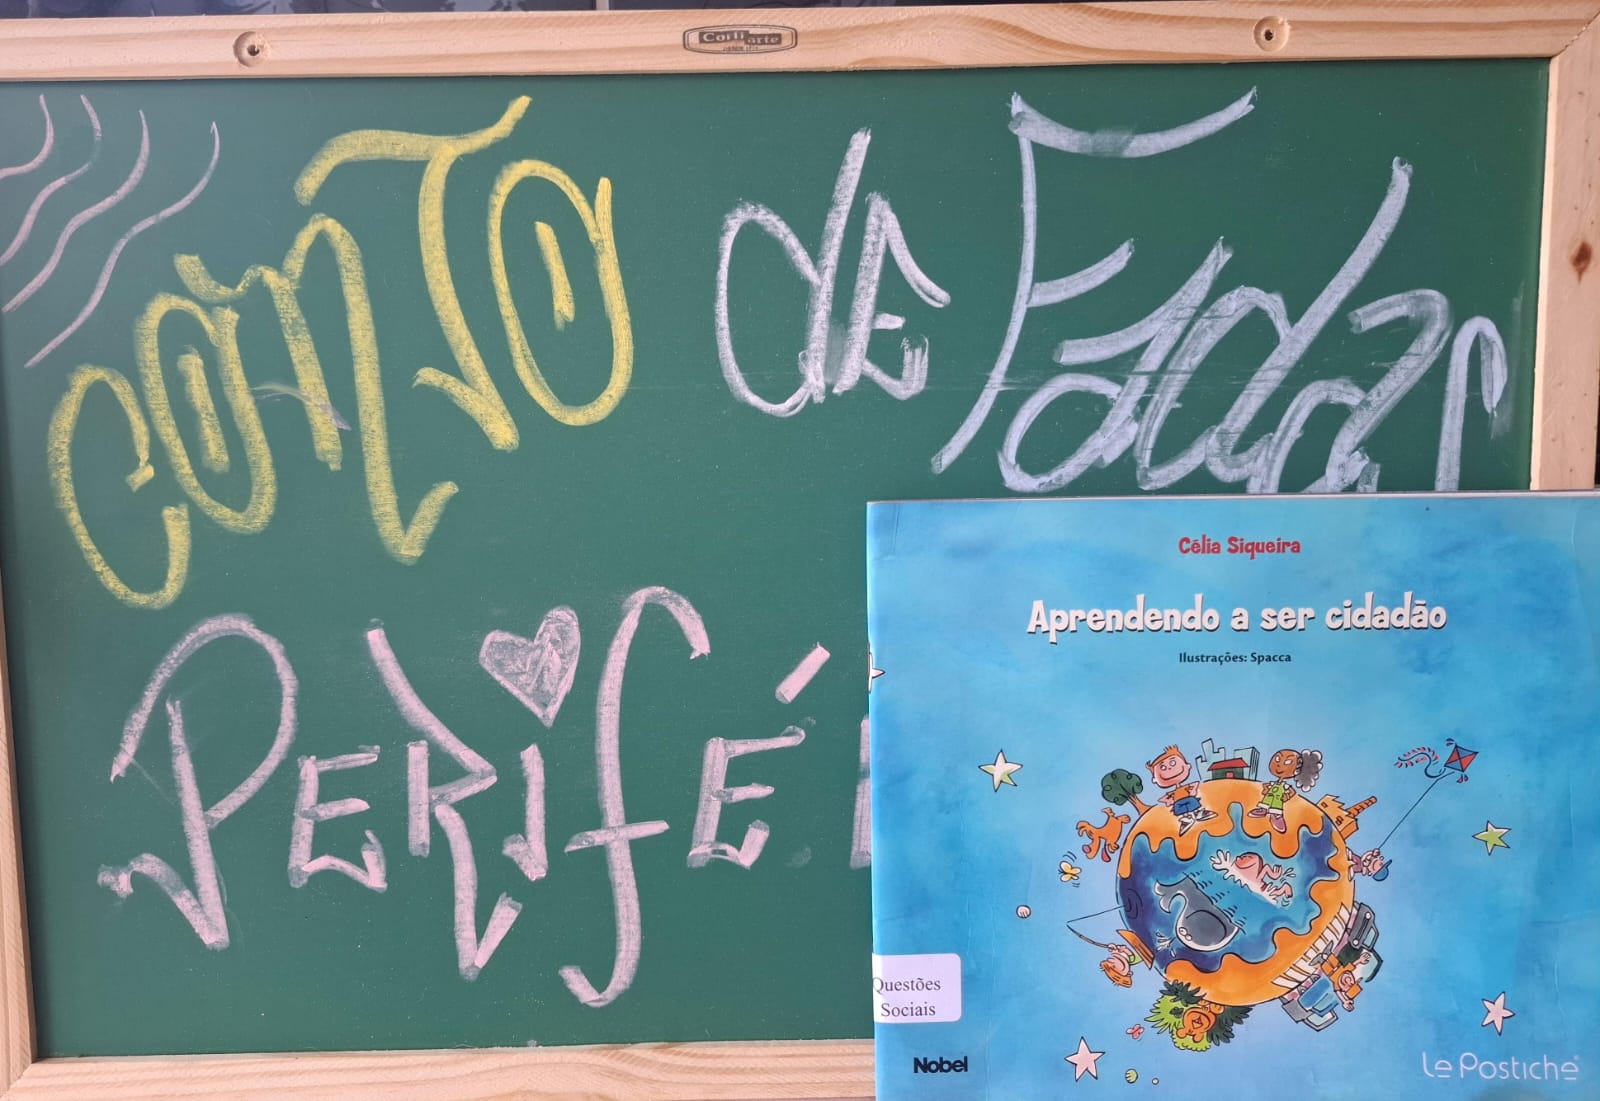 Corti arte
CONTO de Fadas
PERIFÉ
Célia Siqueira
Aprendendo a ser cidadão
Ilustrações: Spacca
Questões
Sociais
Nobel
Le Postiche